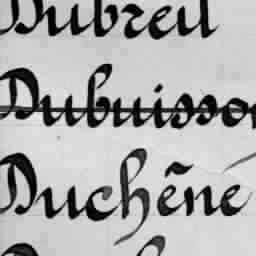 Dubreil
Dubuisson
Duchēné